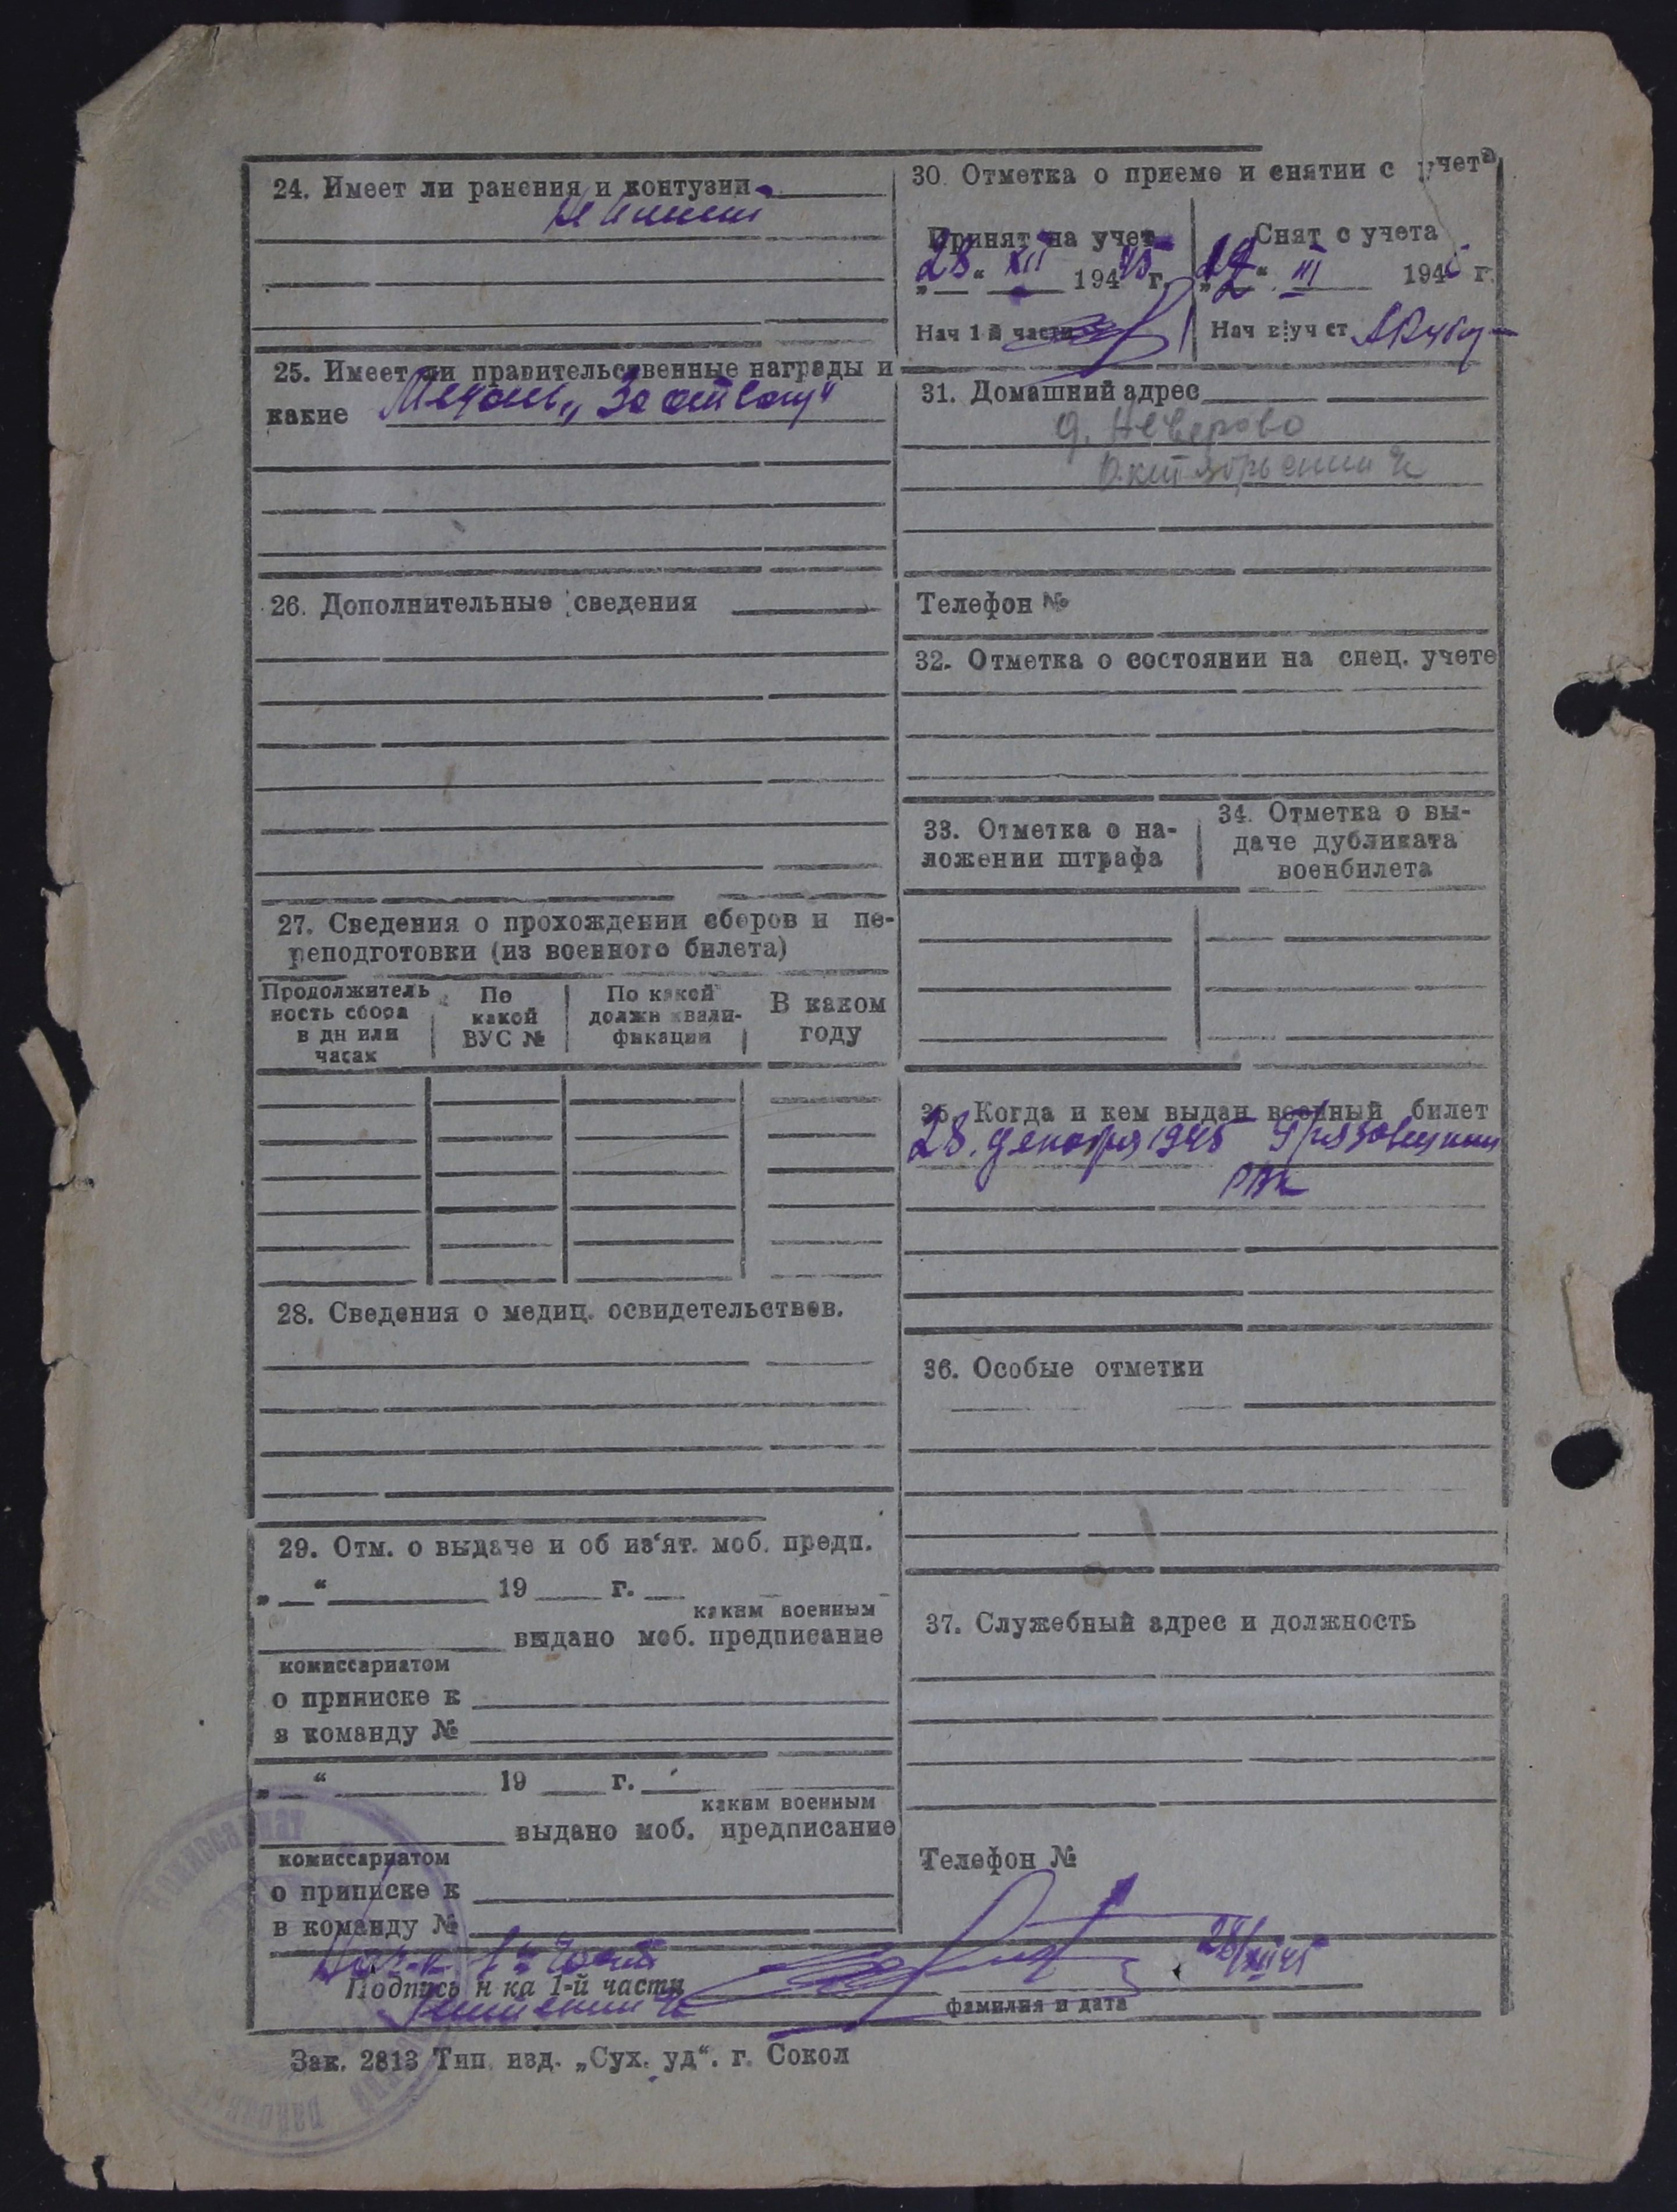 24. Имеет ли ранения и контузии
Не имеет
25. Имеет ли правительственные награды и
какие Медаль „За отвагу“
26. Дополнительные сведения
27. Сведения о прохождении сборов и пе-
реподготовки (из военного билета)
Продолжитель
ность сбора
в дн или
часах
По
какой
ВУС №
По какой
должн квали-
фикации
В каком
году
28. Сведения о медиц. освидетельствов.
29. Отм. о выдаче и об из‘ят. моб. предп.
„ “ 19 г.
каким военным
выдано моб. предписание
комиссариатом
о приписке к
в команду №
„ “ 19 г.
каким военным
выдано моб. предписание
комиссариатом
о приписке к
в команду №
30. Отметка о приеме и снятии с учета
Принят на учет
„28“ XII 1945 г.
Нач 1 й части
Снят с учета
„12“ III 194 г.
Нач в уч ст
31. Домашний адрес
д. Неверово
Октябрьский
Телефон №
32. Отметка о состоянии на спец. учете
33. Отметка о на-
ложении штрафа
34. Отметка о вы-
даче дубликата
военбилета
35. Когда и кем выдан военный билет
28. декабря 1945 Грязовецким
РВК
36. Особые отметки
37. Служебный адрес и должность
Телефон №
Нач-к 1й части
28/XII 45
Подпись н-ка 1-й части
фамилия и дата
Зак. 2813 Тип. изд. „Сух. уд“. г. Сокол